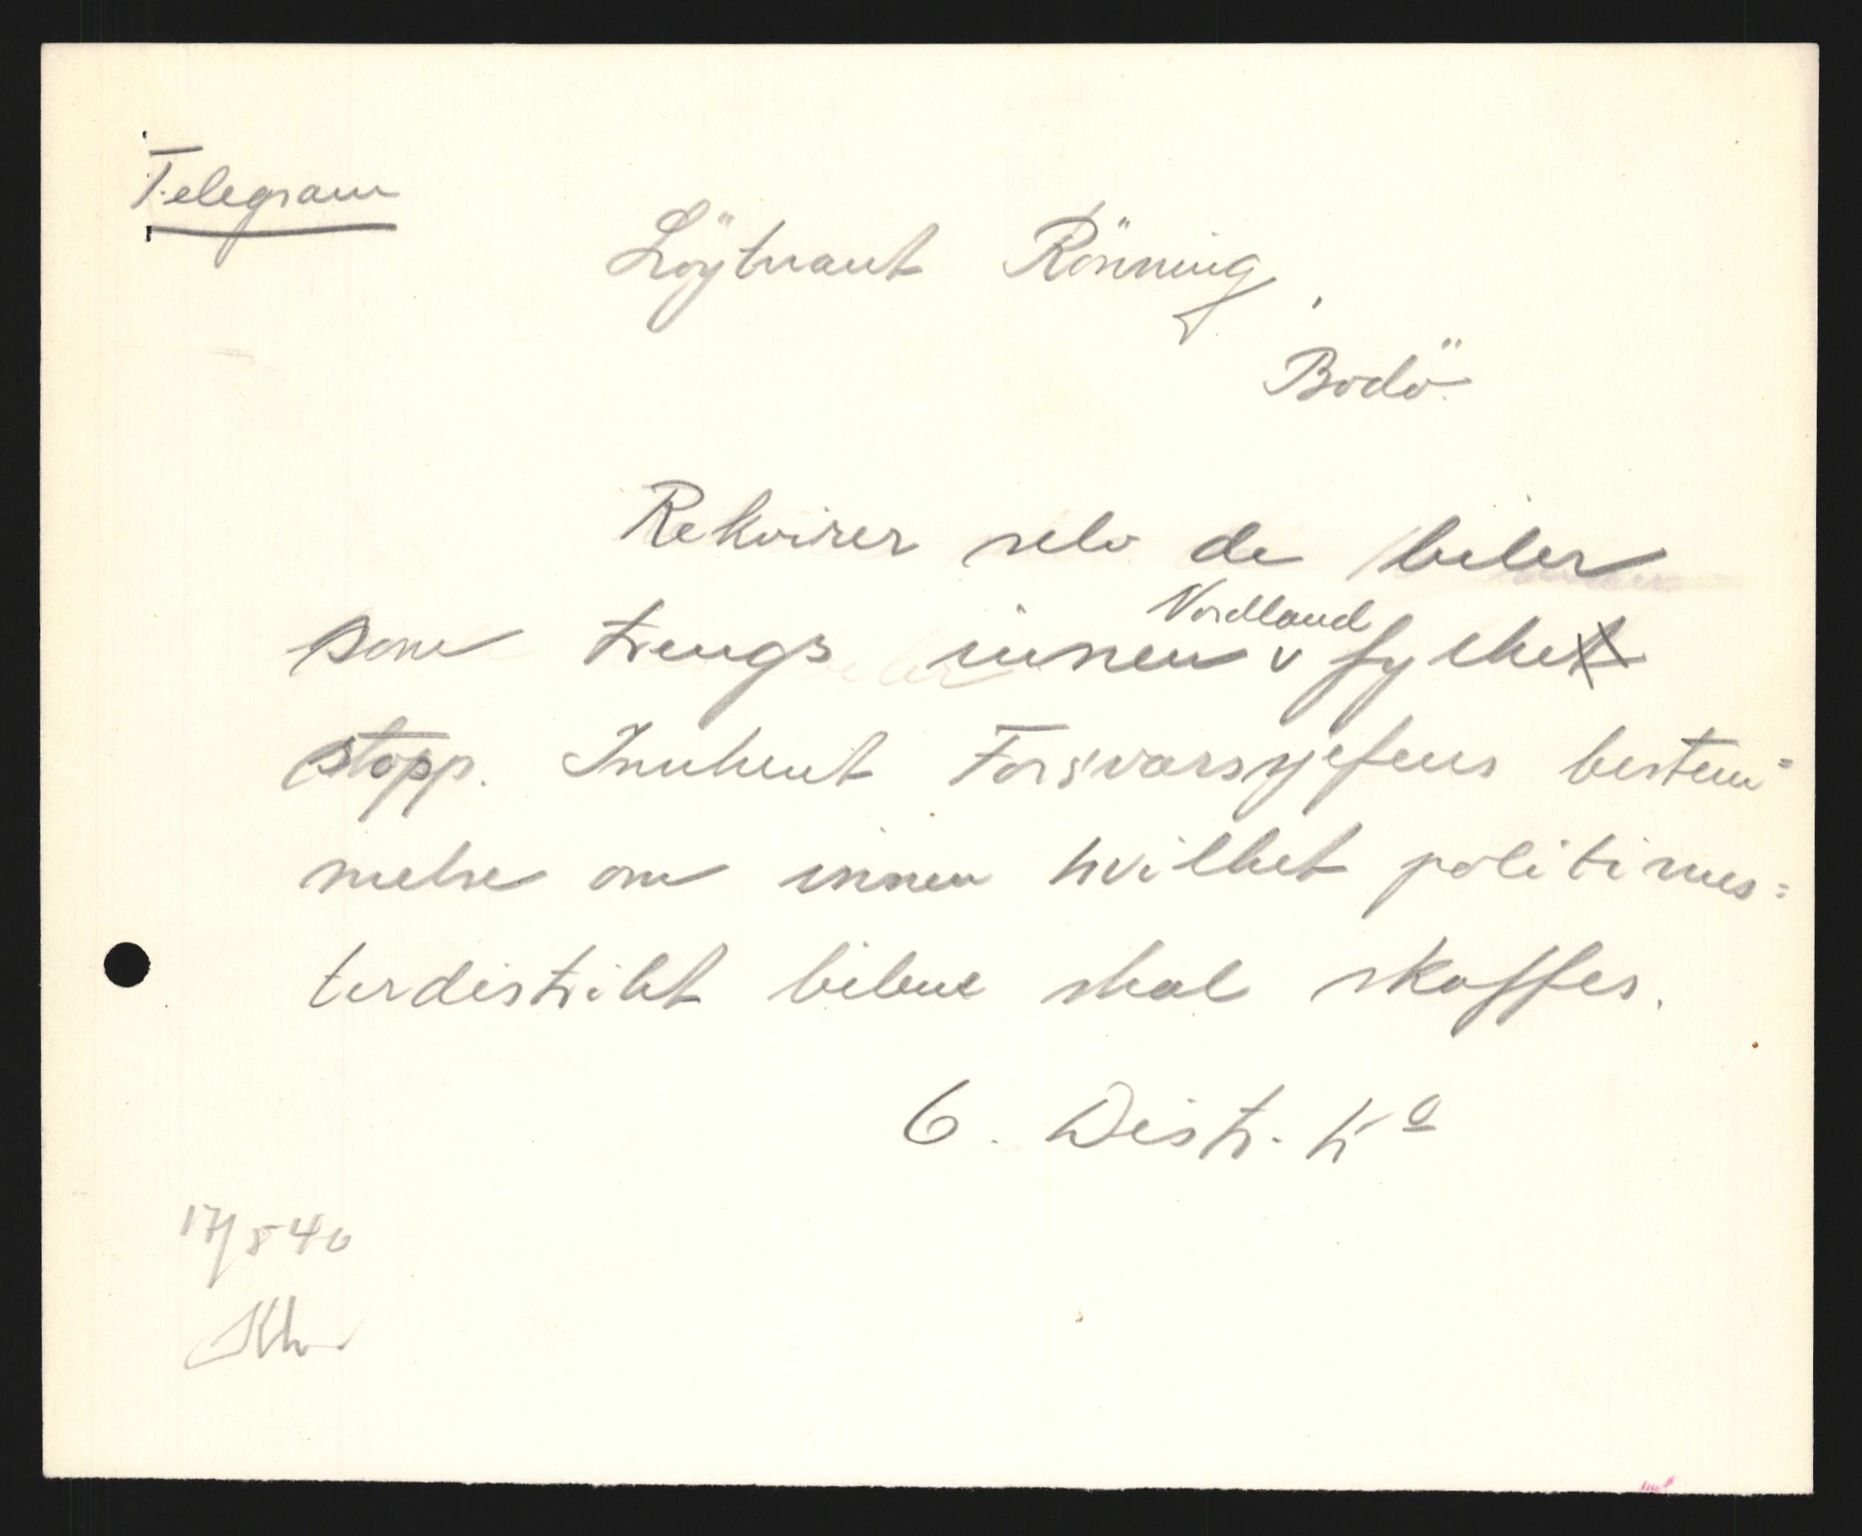 Telegram
Löytnant Rönning,
Bodö.
Rekvirer selv de biler
som trengs innen Nordland fylke
stopp. Innhent Forsvarssjefens bestem=
melse om innen hvilket politimes=
terdistrikt bilene skal skaffes.
6. Distr. K⁰
17/5 40